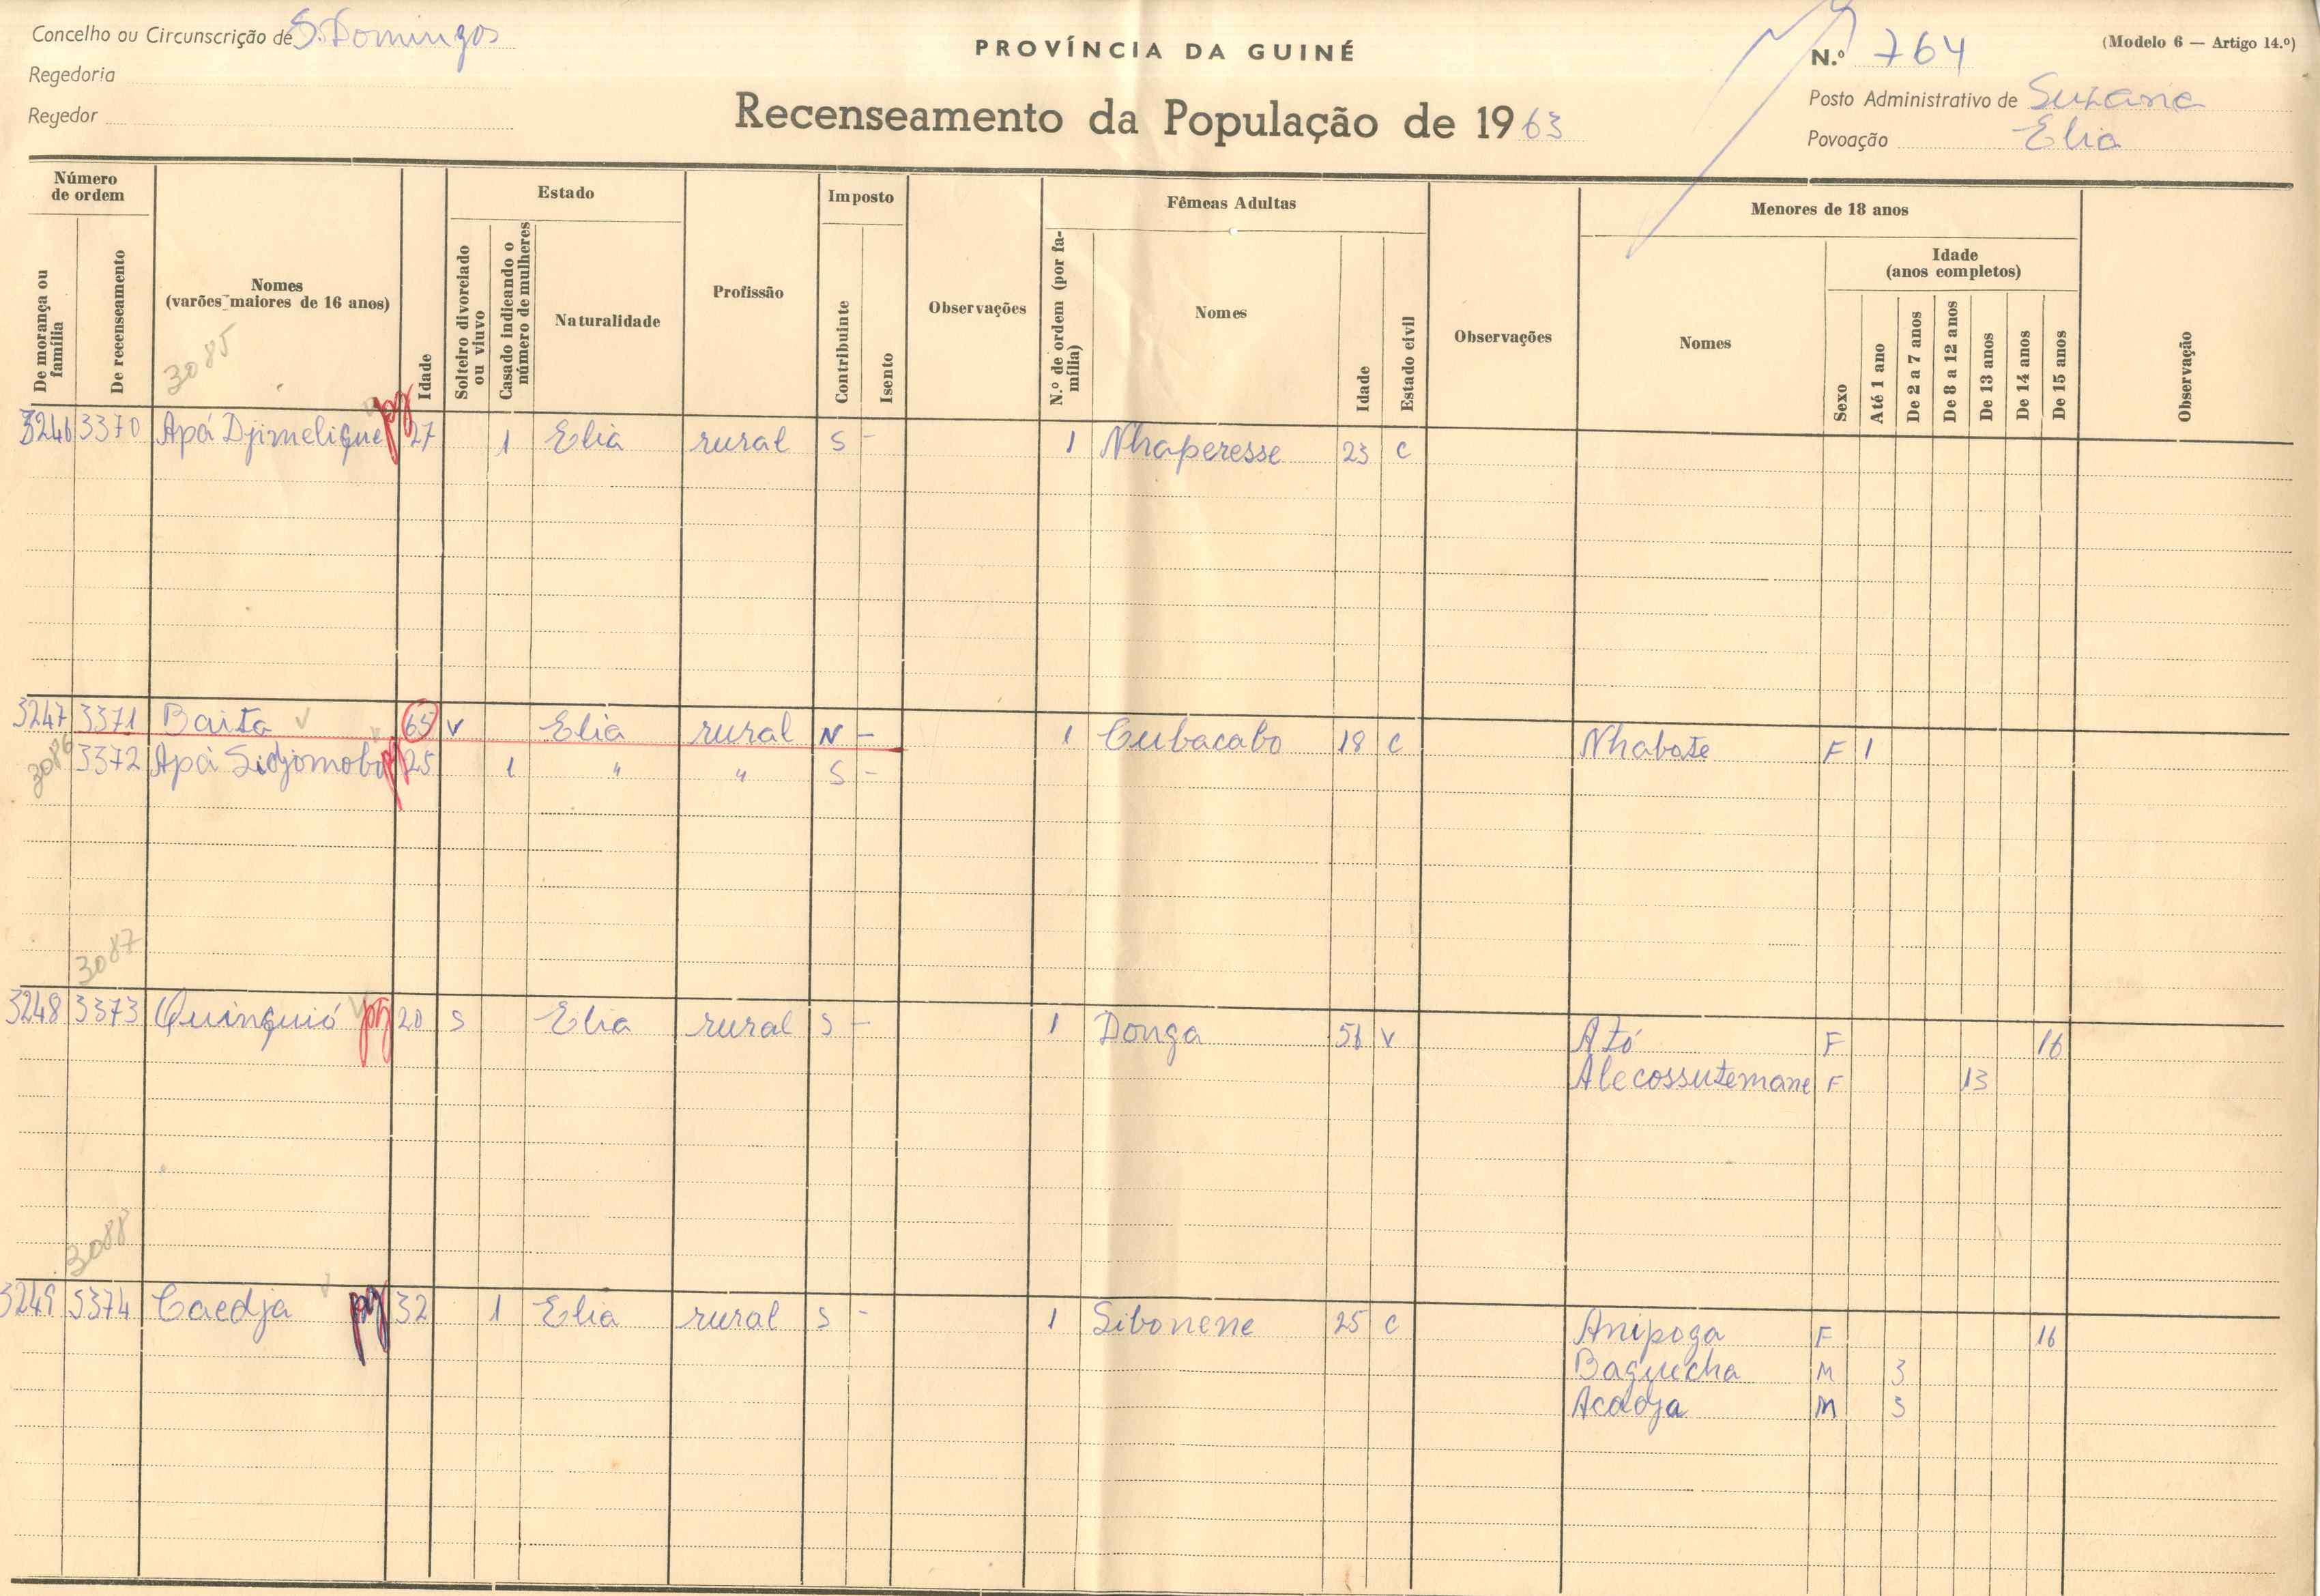 Concelho ou Circunscrição de S. Domingos
Regedoria
Regedor
PROVÍNCIA DA GUINÉ
Recenseamento da População de 1963
N.º 764
(Modelo 6 — Artigo 14.º)
Posto Administrativo de Suzana
Povoação Elia
Número de ordem
De morança ou família
De recenseamento
Nomes
(varões maiores de 16 anos)
3085
Idade
Estado
Solteiro divorciado ou viuvo
Casado indicando o número de mulheres
Naturalidade
Profissão
Imposto
Contribuinte
Isento
Observações
Fêmeas Adultas
N.º de ordem (por família)
Nomes
Idade
Estado civil
Observações
Menores de 18 anos
Nomes
Sexo
Idade
(anos completos)
Até 1 ano
De 2 a 7 anos
De 8 a 12 anos
De 13 anos
De 14 anos
De 15 anos
Observação
3246 3370 Apá Djimelique pg 27 1 Elia rural S - 1 Nhaperesse 23 C
3247 3371 Baita 65 V Elia rural N - 1 Cubacabo 18 C Nhabote F 1
3086 3372 Apá Sidjomobo pg 25 1 " " S -
3087
3248 3373 Quinquió pg 20 S Elia rural S - 1 Donga 56 V Ató F 16
Alecossutemane F 13
3088
3249 3374 Caedja pg 32 1 Elia rural S - 1 Sibonene 25 C Anipoga F 16
Baguecha M 3
Acadja M 3